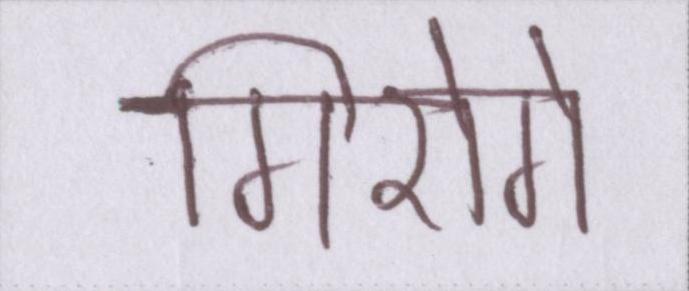 गिरोगे